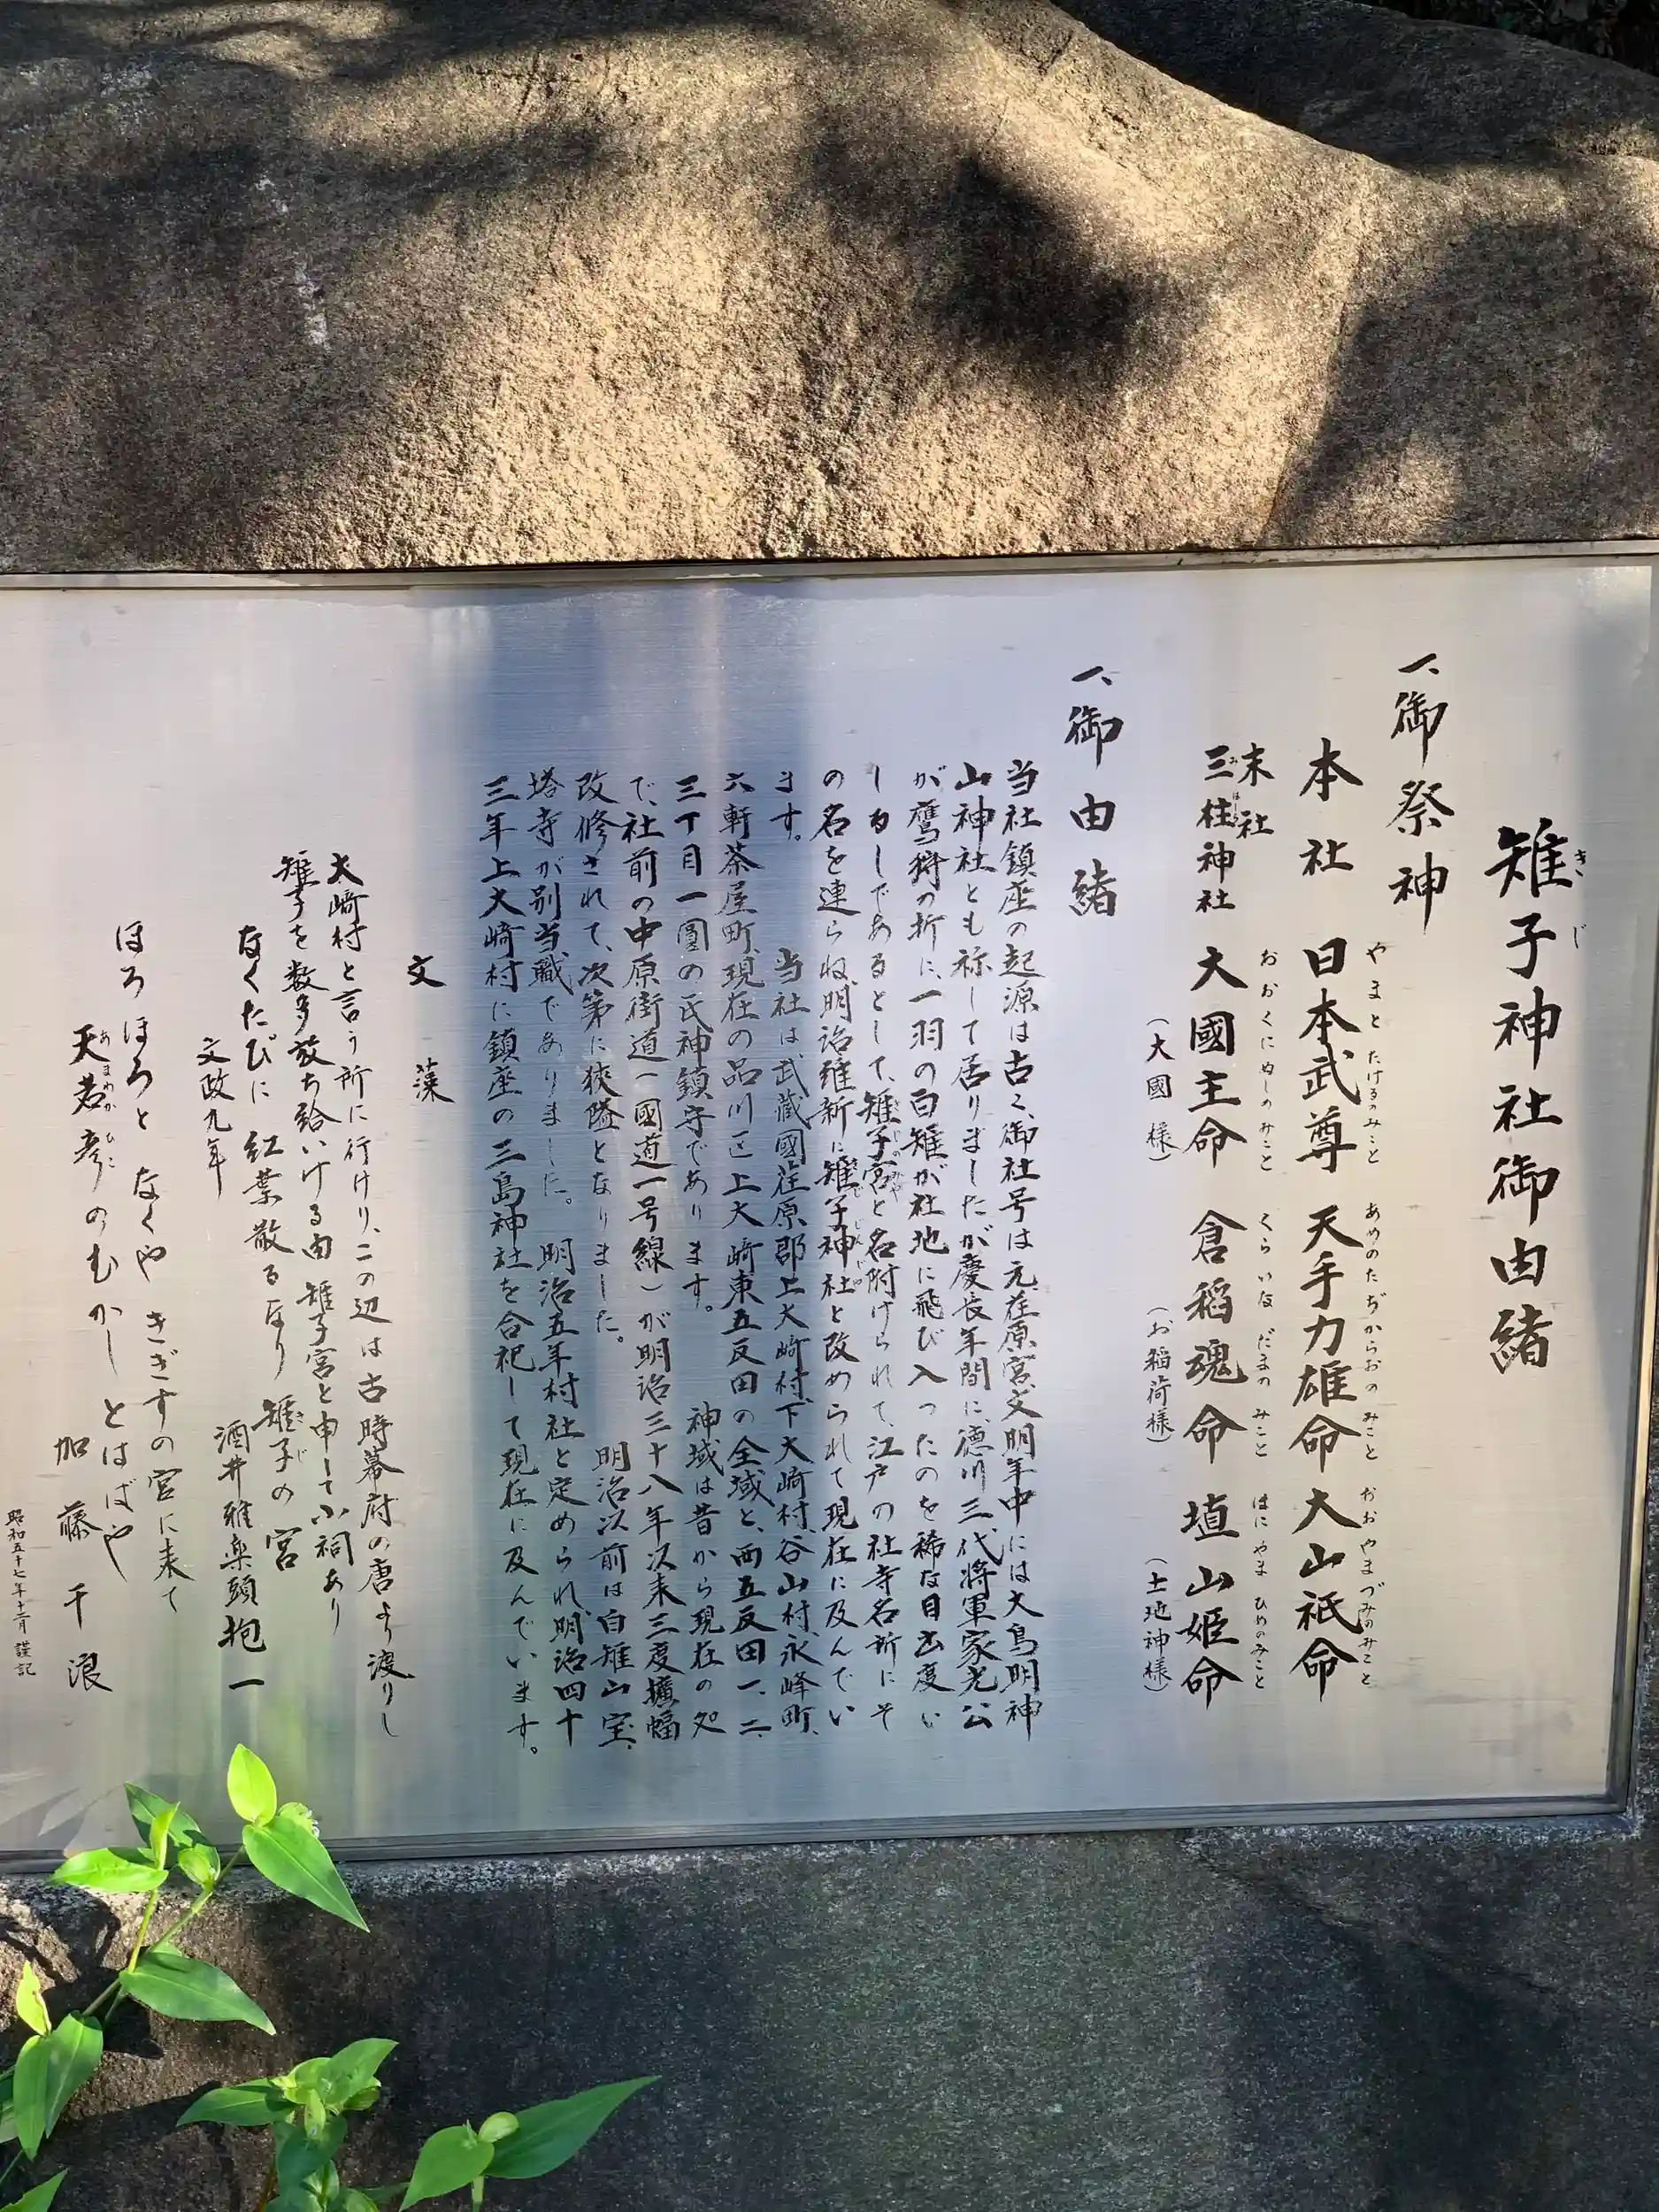 雉子神社御由緒
きじ
一、御祭神
本社 日本武尊 天手力雄命 大山祇命
やまとたけるのみこと あめのたぢからおのみこと おおやまづみのみこと
末社
三柱神社 大國主命 倉稲魂命 埴山姫命
みはしら おおくにぬしのみこと くらいなだまのみこと はにやまひめのみこと
(大國様) (お稲荷様) (土地神様)
一、御由緒
当社鎮座の起源は古く、御社号は元荏原宮、文明年中には大鳥明神
山神社とも祢して居りましたが慶長年間に、徳川三代将軍家光公
が鷹狩の折に、一羽の白雉が社地に飛び入ったのを稀な目出度い
しるしであるとして、雉子宮と名附けられて、江戸の社寺名所にそ
の名を連らね、明治維新に雉子神社と改められて現在に及んでい
ます。 当社は武蔵國荏原郡上大崎村、下大崎村、谷山村、永峰町、
六軒茶屋町、現在の品川区上大崎東五反田の全域と、西五反田一、二、
三丁目一圓の氏神鎮守であります。 神域は昔から現在の処
で、社前の中原街道(國道一号線)が明治三十八年次来三度擴幅
改修されて、次第に狭隘となりました。 明治以前は白雉山宝、
塔寺が別当職でありました。 明治五年村社と定められ、明治四十
三年上大崎村に鎮座の三島神社を合祀して現在に及んでいます。
文藻
大崎村と言う所に行けり、この辺は古時幕府の唐より渡りし
雉子を数多放ち給いける由 雉子宮と申して小祠あり
なくたびに 紅葉散るなり 雉子の宮
文政九年 酒井雅楽頭抱一
ほろほろと なくや きぎすの宮に来て
天若彦のむかし とはばや
あまわかひこ
加藤千浪
昭和五十七年十二月 謹記